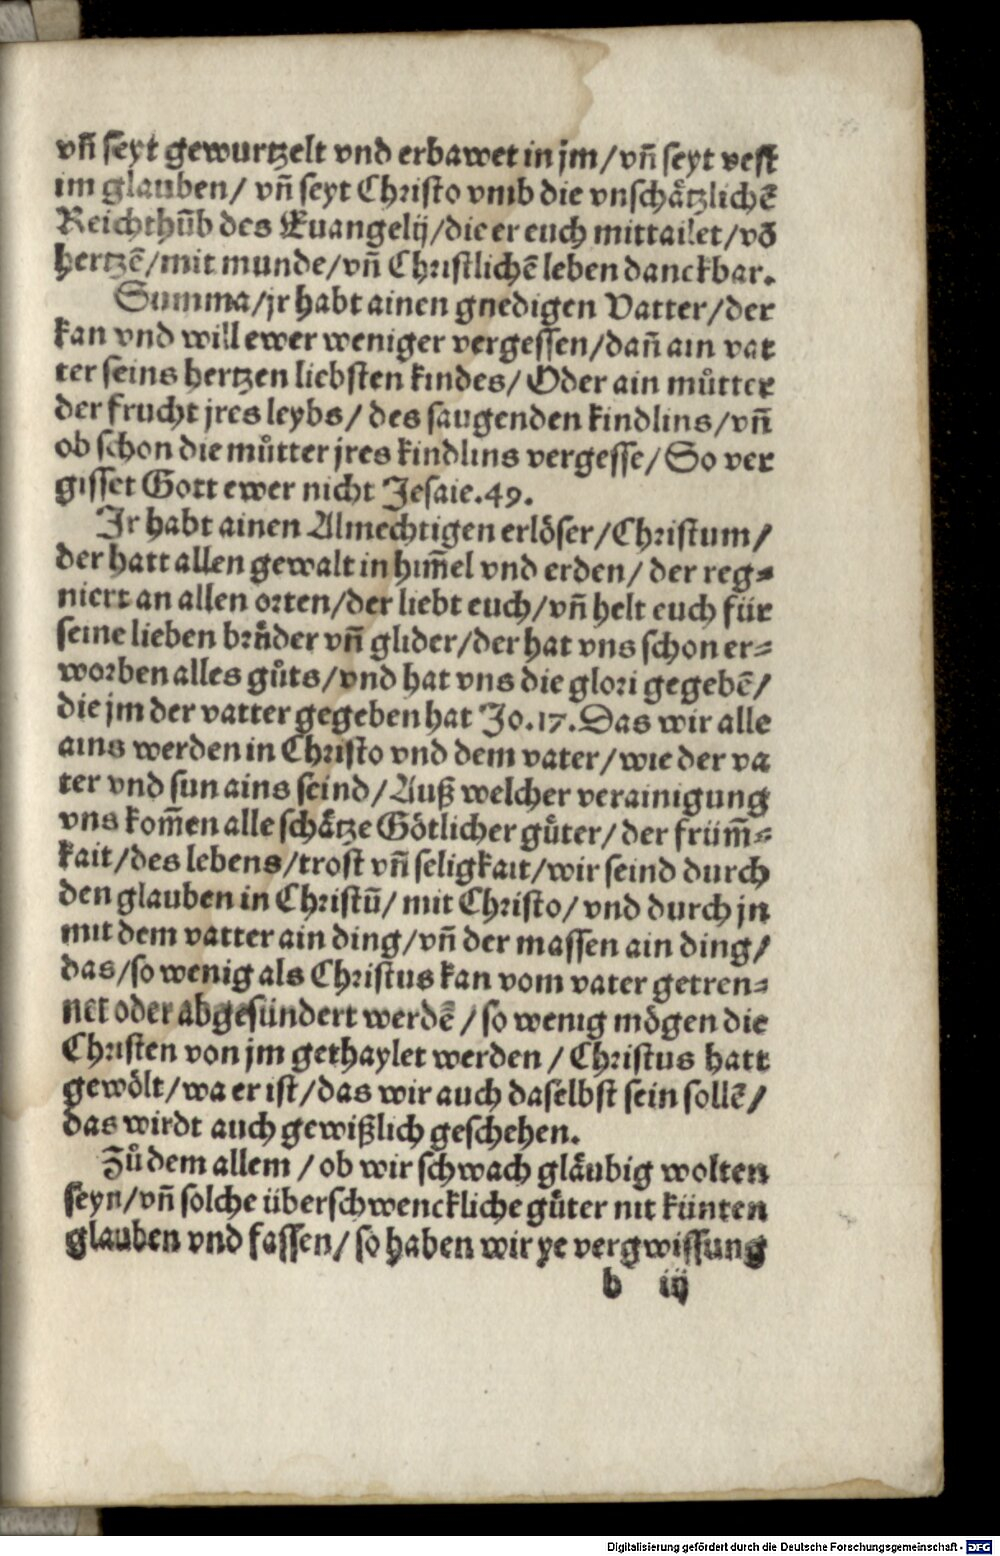 vn̄ seyt gewurtzelt vnd erbawet in jm/vn̄ seyt vest
im glauben/ vn̄ seyt Christo vmb die vnschätzlichē
Reichthūb des Euangelij/die er euch mittailet/vō
hertzē/mit munde/vn̄ Christlichē leben danckbar.
Summa/jr habt ainen gnedigen Vatter/der
kan vnd will ewer weniger vergessen/dañ ain vat
ter seins hertzen liebsten kindes/ Oder ain můtter
der frucht jres leybs/ des saugenden kindlins/vn̄
ob schon die můtter jres kindlins vergesse/ So ver
gisset Gott ewer nicht Jesaie.49.
Jr habt ainen Almechtigen erlöser/Christum/
der hatt allen gewalt in him̄el vnd erden/ der reg⸗
niert an allen orten/der liebt euch/vn̄ helt euch für
seine lieben brůder vn̄ glider/der hat vns schon er⸗
worben alles gůts/vnd hat vns die glori gegebē/
die jm der vatter gegeben hat Jo.17.Das wir alle
ains werden in Christo vnd dem vater/wie der va
ter vnd sun ains seind/Auß welcher verainigung
vns kom̄en alle schätze Götlicher gůter/ der früm̄⸗
kait/des lebens/trost vn̄ seligkait/wir seind durch
den glauben in Christū/ mit Christo/ vnd durch jn
mit dem vatter ain ding/vn̄ der massen ain ding/
das/so wenig als Christus kan vom vater getren⸗
net oder abgesündert werdē/so wenig mögen die
Christen von jm gethaylet werden/Christus hatt
gewölt/wa er ist/das wir auch daselbst sein sollē/
das wirdt auch gewißlich geschehen.
Zů dem allem/ob wir schwach gläubig wolten
seyn/vn̄ solche überschwenckliche gůter nit künten
glauben vnd fassen/so haben wir ye vergwissung
b iij
Digitalisierung gefördert durch die Deutsche Forschungsgemeinschaft - DFG